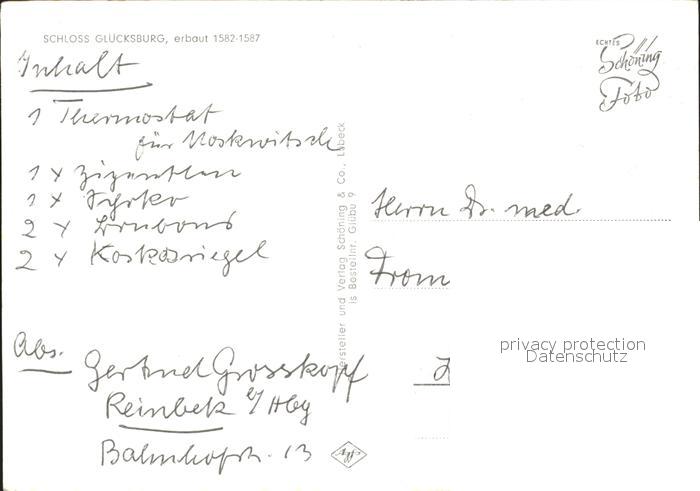 SCHLOSS GLÜCKSBURG, erbaut 1582-1587
ECHTES
Schöning
Foto
Inhalt
1 Thermostat
für Moskwitsch
1 x
1 x
2 x
2 x
Hersteller und Verlag Schöning & Co., Lübeck
Bestellnr. Glübu 9
Herrn Dr. med.
From
privacy protection
Datenschutz
Abs.
Gertrud Grosskopf
Reinbek b/Hbg
Bahnhofstr. 13
Agfa